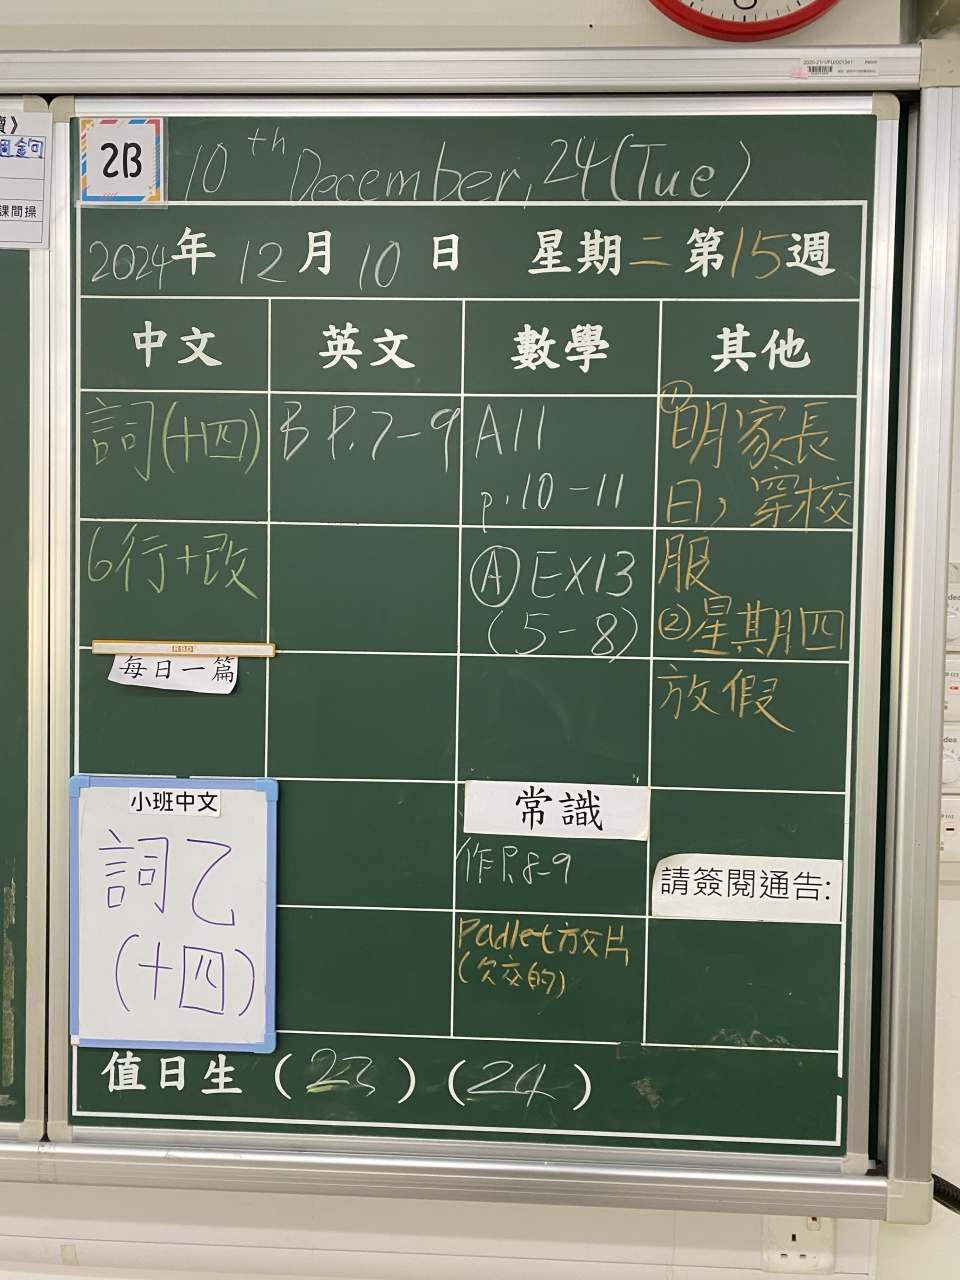 2B
10th December, 24 (Tue)
2024年 12月 10日 星期二 第15週
中文 英文 數學 其他
詞(十四)
6行+改
每日一篇
小班中文
詞乙
(十四)
B P.7-9
A11
p.10-11
Ⓐ EX13
(5-8)
常識
作P.8-9
Padlet放片
(欠交的)
①明家長
日,穿校
服
②星期四
放假
請簽閱通告:
值日生 (23) (24)
課間操